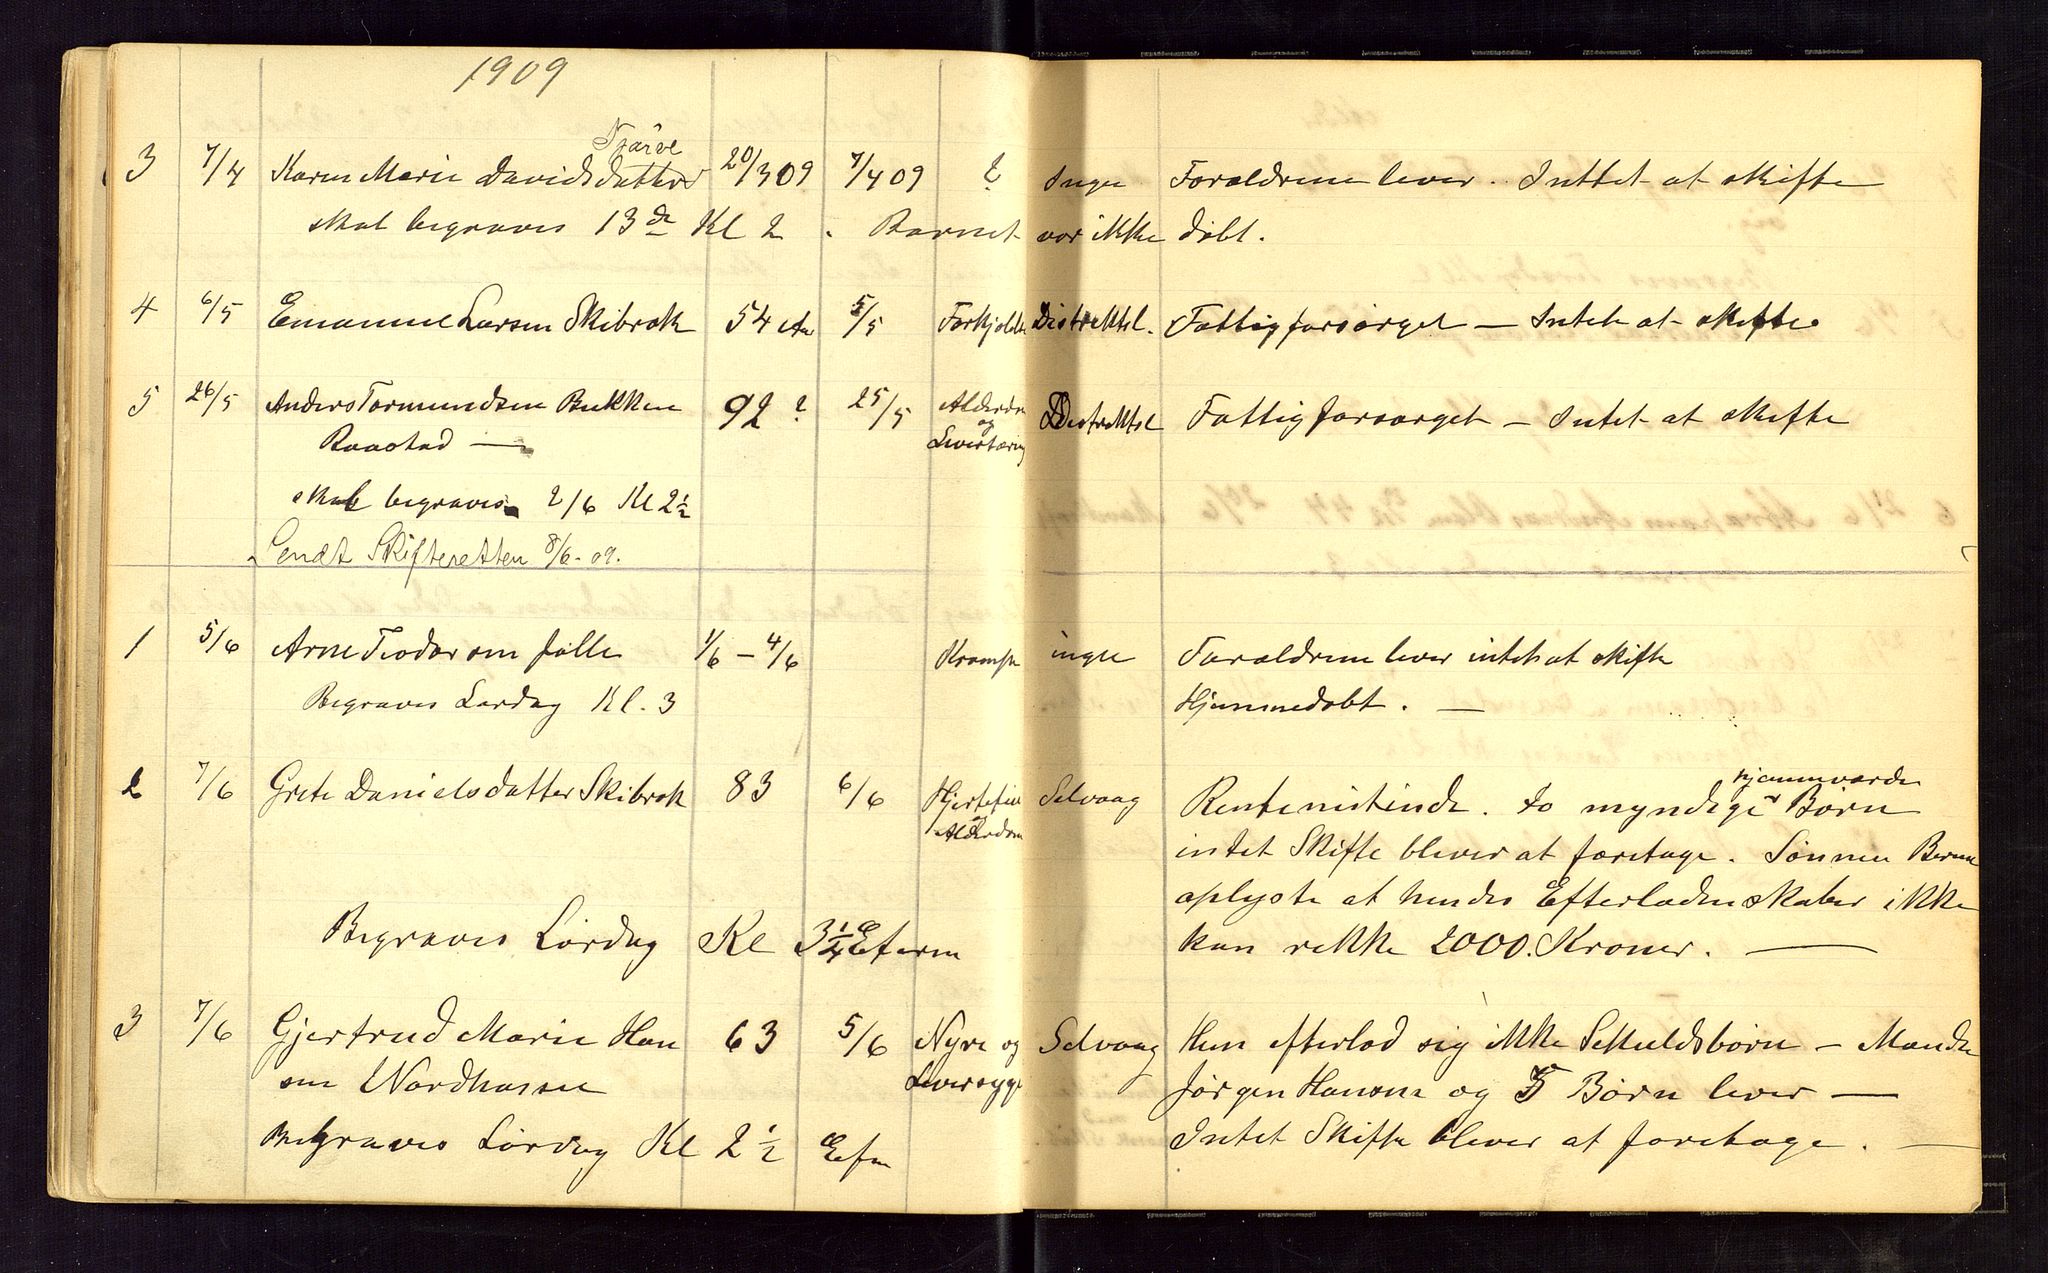 1909
Njårve
3 7/4 Karen Marie Davidsdatter 20/3 09 7/4 09 ? Ingen Forældrene lever. Inttet at skifte
skal begraves 13de Kl 2 . Barnet var ikke døbt.
4 6/5 Emanuel Larsen Skibræk 54 Aar 5/5 Forkjølelse Distriktsl. Fattigforsørget — Intet at skifte
5 26/5 Anders Tormundsen Bukken 92 ? 25/5 Alderdom Distriktsl Fattigforsørget — Intet at skifte
Raastad — og
Levertæring
skal begraves 2/6 Kl 2½
Sendt Skifteretten 8/6-09.
1 5/6 Arne Teodor 1/6 – 4/6 Krampe ingen Forældrene lever intet at skifte
Begraves Lørdag Kl. 3 Hjemmedøbt. —
hjemmeværende
2 7/6 Grete Danielsdatter Skibræk 83 6/6 Hjertefeil Selvaag Rentenistinde. to myndige Børn
og
Alderdom intet Skifte bliver at foretage. Sønnen
oplyste at hendes Efterladenskaber ikke
Begraves Lørdag Kl 3¼ Eferm kan række 2000. Kroner. —
3 7/6 Gjertrud Marie Han 63 5/6 Nyre og Selvaag Hun efterlod sig ikke Skuldsbørn — Manden
sen Nordhassel Leversyge Jørgen Hansen og 5 Børn lever —
Begraves Lørdag Kl 2½ Eefm Intet Skifte bliver at foretage. —